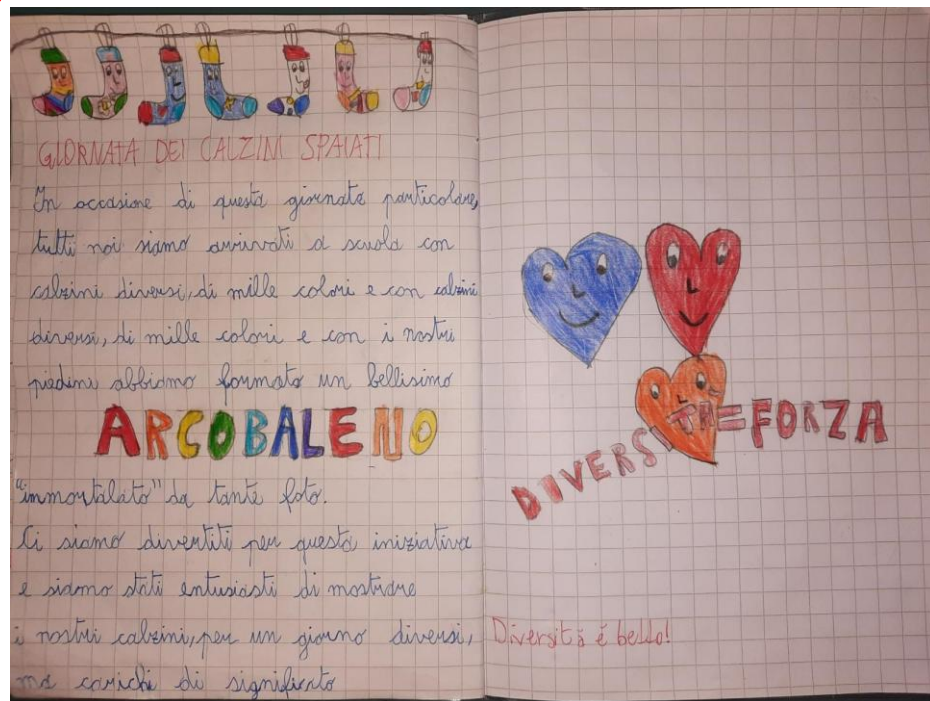 GIORNATA DEI CALZINI SPAIATI
In occasione di questa giornata particolare,
tutti noi siamo arrivati a scuola con
calzini diversi, di mille colori e con calzini
diversi, di mille colori e con i nostri
piedini abbiamo formato un bellisimo
ARCOBALENO
"immortalato" da tante foto.
Ci siamo divertiti per questa iniziativa
e siamo stati entusiasti di mostrare
i nostri calzini, per un giorno diversi,
ma carichi di significato
DIVERSITÀ=FORZA
Diversitá é bello!